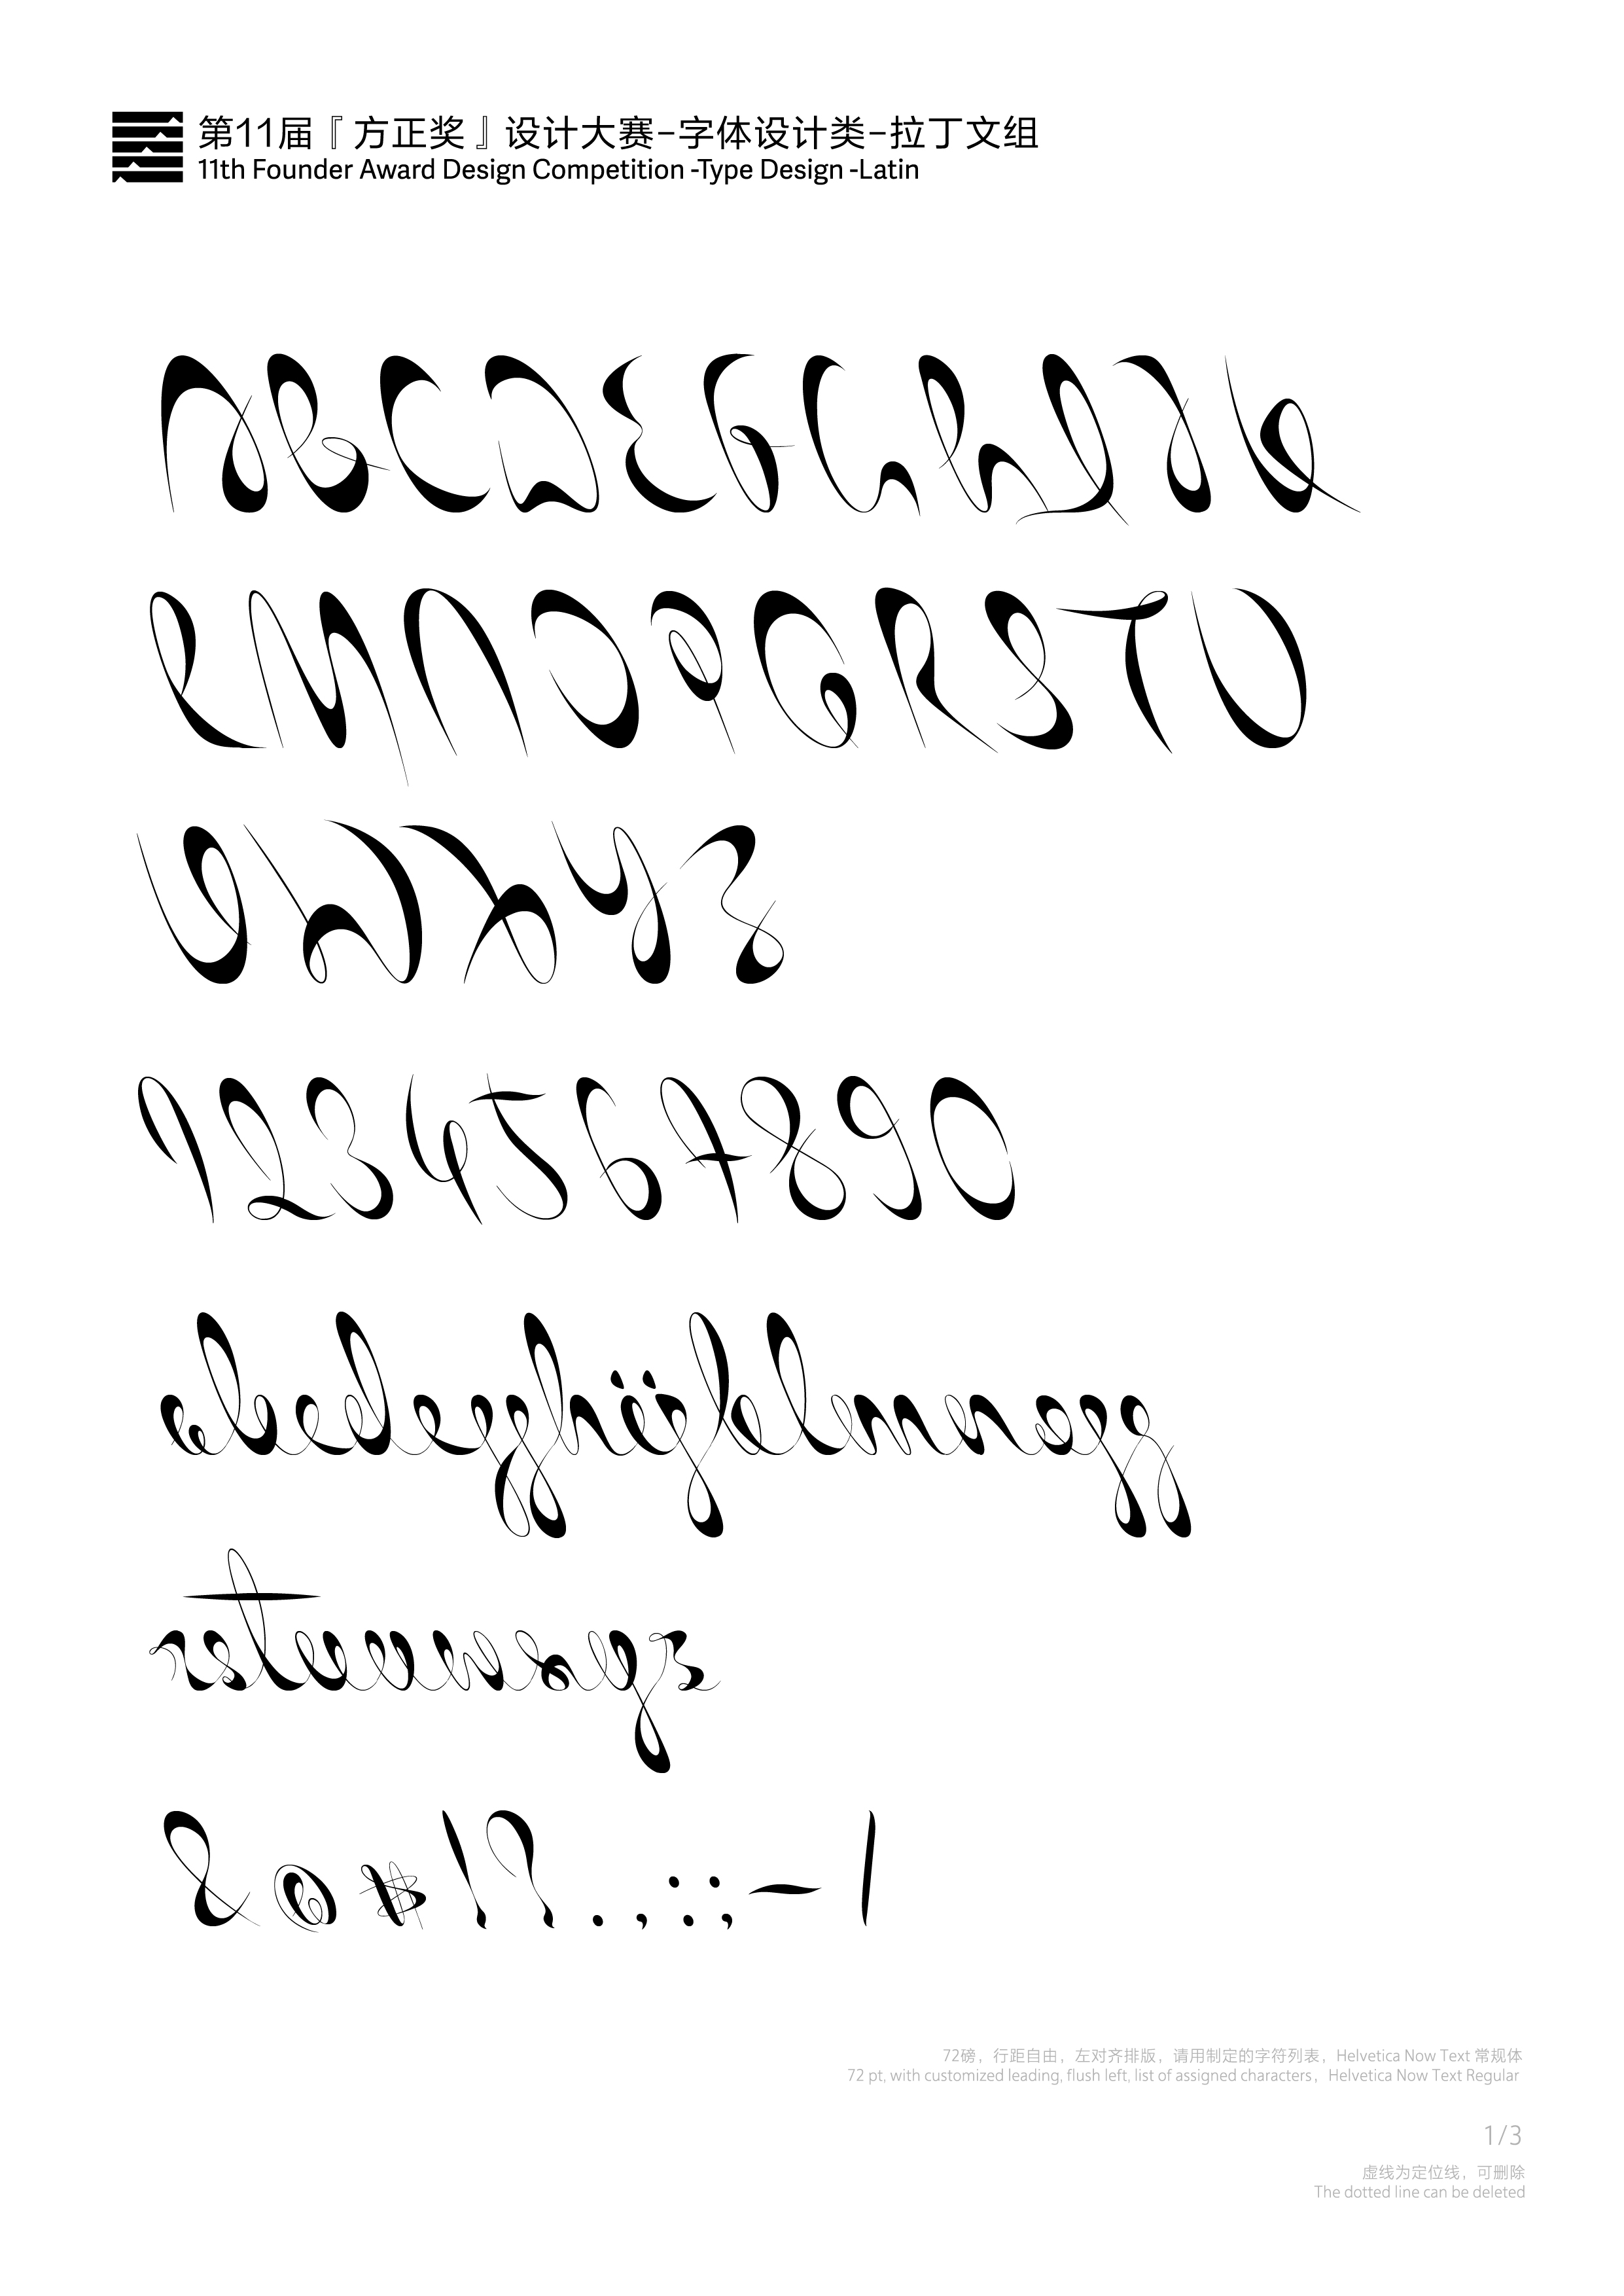 第11届『方正奖』设计大赛-字体设计类-拉丁文组
11th Founder Award Design Competition -Type Design -Latin
ABCDEFGHIJK
LMNOPQRSTU
VWXYZ
1234567890
abcdefghijklmnopq
rstuvwxyz
&@$!?.,:;-/
72磅，行距自由，左对齐排版，请用制定的字符列表，Helvetica Now Text 常规体
72 pt, with customized leading, flush left, list of assigned characters，Helvetica Now Text Regular
1/3
虚线为定位线，可删除
The dotted line can be deleted